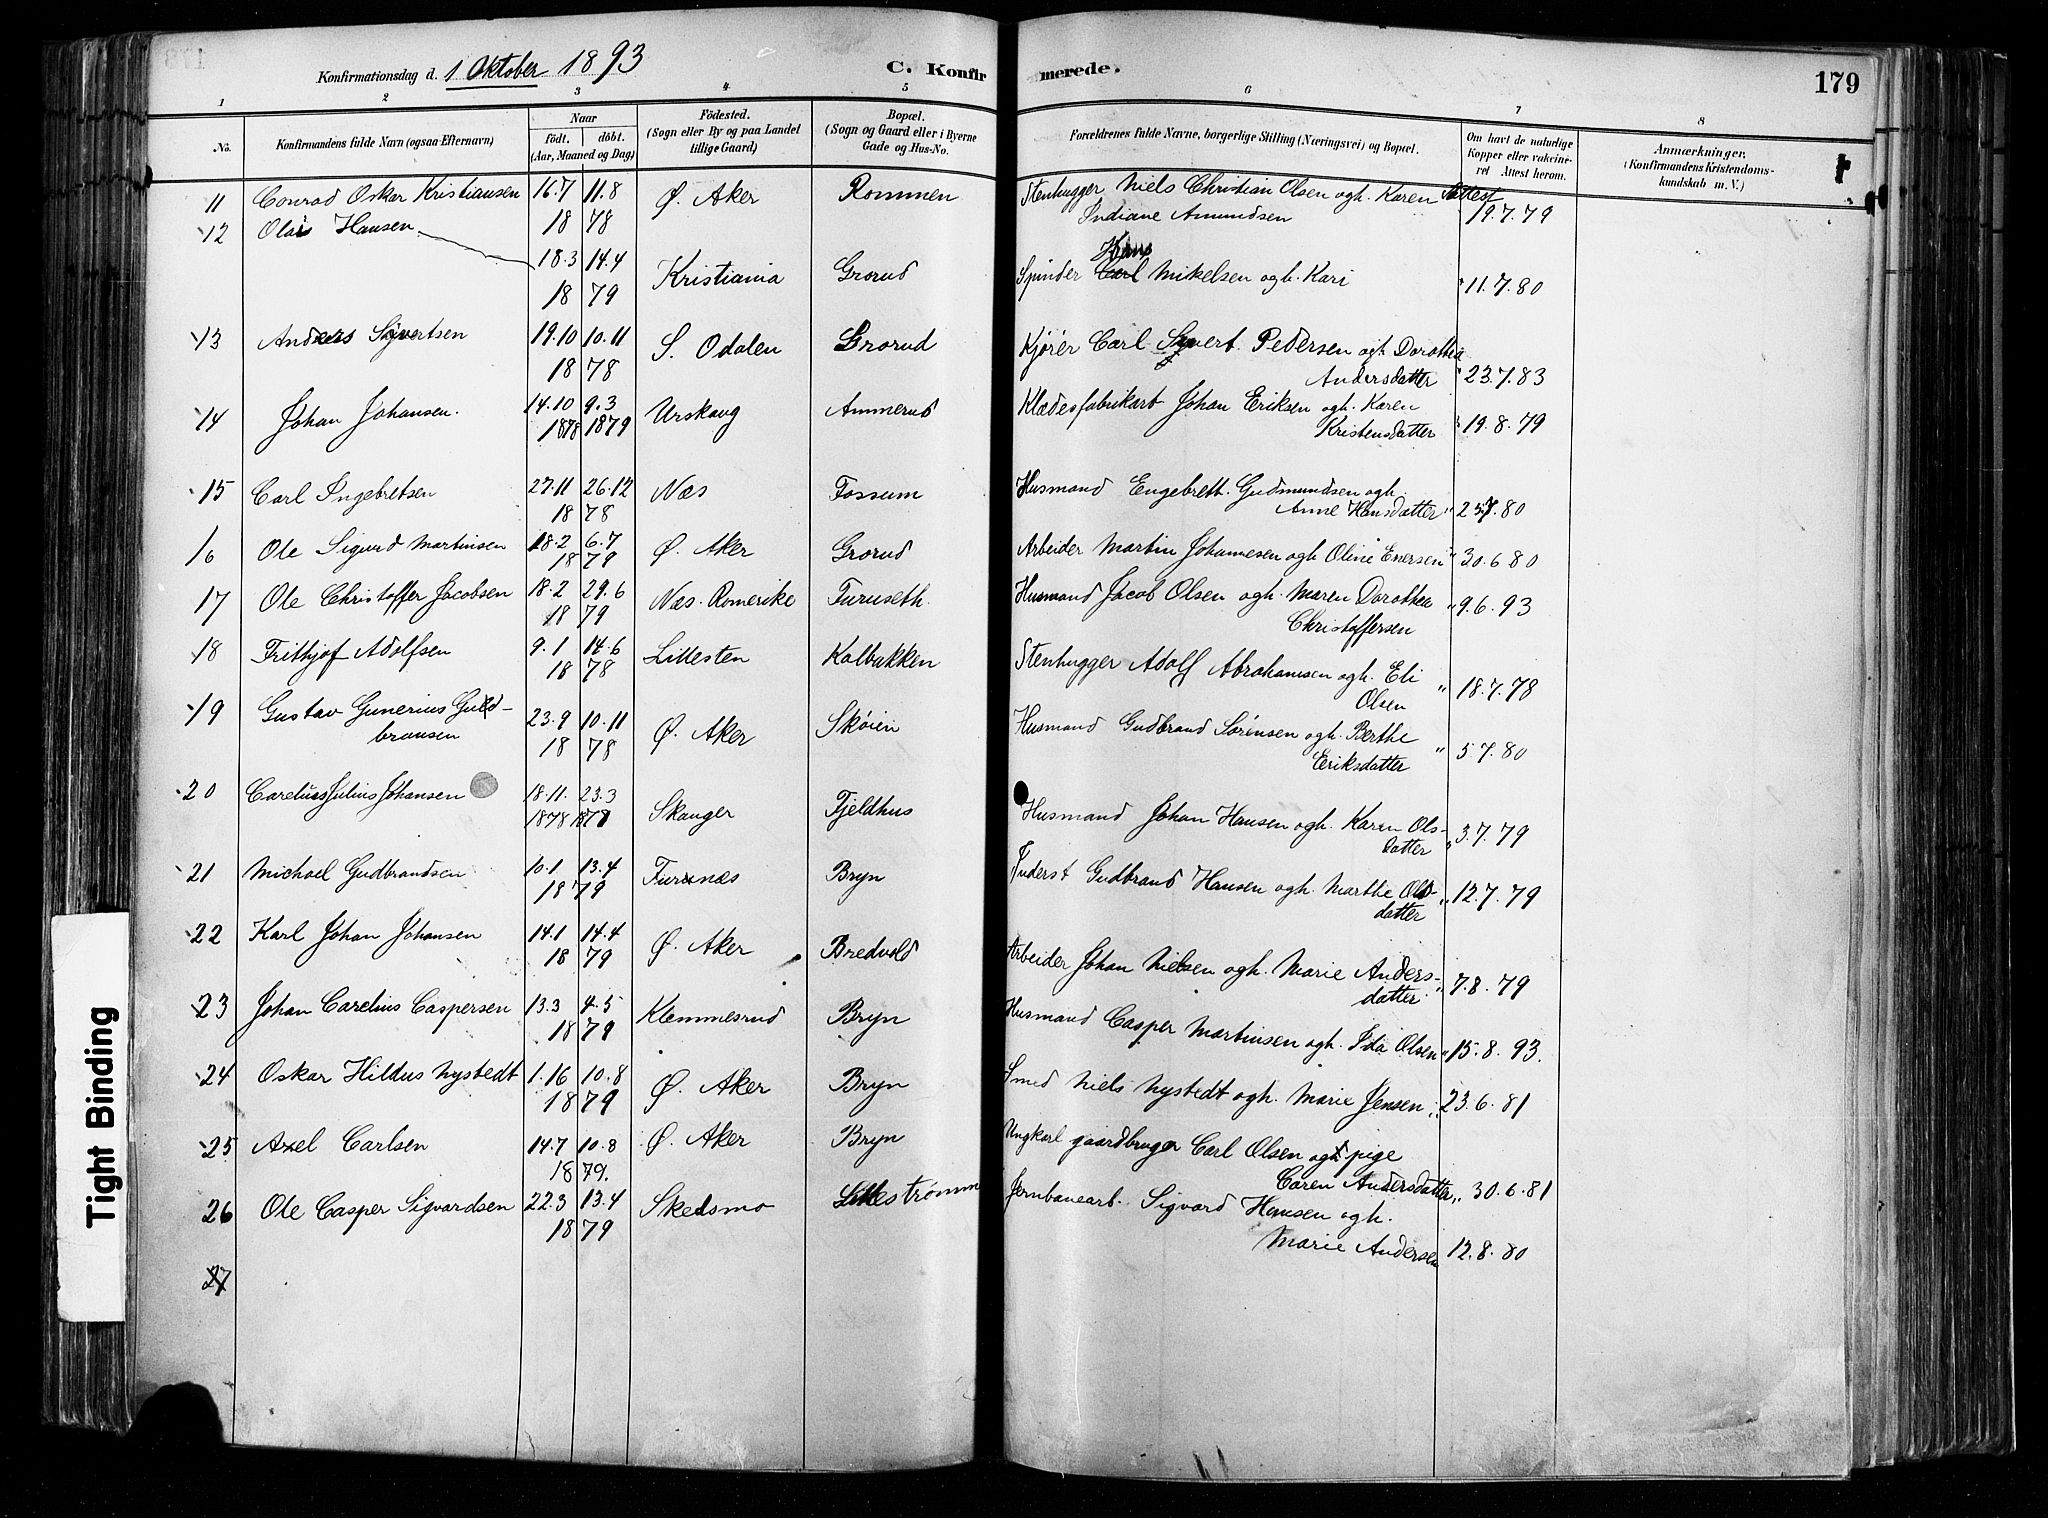 Konfirmationsdag d. 1 Oktober 1893
C. Konfirmerede.
179
1 2 3 4 5 6 7 8
No.
Konfirmandens fulde Navn (ogsaa Efternavn)
Naar
födt. döbt.
(Aar, Maaned og Dag)
Födested.
(Sogn eller By og paa Landet
tillige Gaard)
Bopæl.
(Sogn og Gaard eller i Byerne
Gade og Hus-No.
Forældrenes fulde Navne, borgerlige Stilling (Næringsvei) og Bopæl.
Om havt de naturlige
Kopper eller vakcine-
ret Attest herom.
Anmærkninger.
(Konfirmandens Kristendoms-
kundskab m. V.)
11 Conrad Oskar Kristiansen 16.7 11.8 Ø. Aker Rommen Stenhugger Niels Christian Olsen ogh. Karen Attest
18 78 Indiane Amundsen 19.7.79
12 Olais Hansen 18.3 14.4 Kristiania Grorud Spinder Hans Mikelsen ogh. Kari " 11.7.80
18 79
13 Anders Sigvertsen 19.10 10.11 S. Odalen Grorud Kjører Carl Sigvert Pedersen ogh Dorothea
18 78 Andersdatter " 23.7.83
14 Johan Johansen. 14.10 9.3 Urskoug Ammerud Klædesfabrikarb Johan Eriksen ogh. Karen
1878 1879 Kristensdatter " 19.8.79
15 Carl Ingebretsen 27.11 26.12 Næs Fossum Husmand Engebreth. Gudmundsen ogh.
18 78 Anne Hansdatter " 25.7.80
16 Ole Sigurd Martinsen 18.2 6.7 Ø. Aker Grorud Arbeider Martin Johannesen ogh Oline Enersen " 30.6 80
18 79
17 Ole Christoffer Jacobsen 18.2 29.6 Næs. Romerike Furuseth. Husmand Jacob Olsen ogh. Maren Dorothea " 9.6.93
18 79 Christoffersen
18 Frithjof Adolfsen 9.1 14.6 Lillesten Kalbakken Stenhugger Adolf Abrahamsen ogh. Eli " 18.7.78
18 78 Olsen
19 Gustav Gunerius Guld-
bransen 23.9 10.11 Ø. Aker Skøien Husmand Gudbrand Sørensen ogh. Berthe " 5.7.80
18 78 Eriksdatter
20 Carelius Julius Johansen 18.11. 23.3 Skauger Fjeldhus Husmand Johan Hansen ogh. Karen Ols-
1878 datter " 3.7.79
21 Michael Gudbrandsen 10.1 13.4 Furunæs Bryn Inderst Gudbrand Hansen ogh. Marthe Ols " 12.7.79
18 79 datter
22 Karl Johan Johansen 14.1 14.4 Ø. Aker Bredvold Arbeider Johan Nielsen ogh. Marie Anders-
18 79 datter. " 7.8.79
23 Johan Carelius Caspersen 13.3 4.5 Klemmesrud Bryn Husmand Casper Martinsen ogh. Ida Olsen " 15.8.93.
18 79
24 Oskar Hildus Nystedt 1.16 10.8 Ø. Aker Bryn Smed Niels Nystedt ogh. Marie Jensen " 23.6.81
18 79
25 Axel Carlsen 14.7 10.8 Ø. Aker Bryn Ungkarl gaardbruger Carl Olsen og pige
18 79. Caren Andersdatter " 30.6.81
26 Ole Casper Sigvardsen 22.3 13.4 Skedsmo Lillestrømm Jernbanearb. Sigvard Hansen ogh.
18 79 Marie Andersen 12.8.80
27
Tight Binding